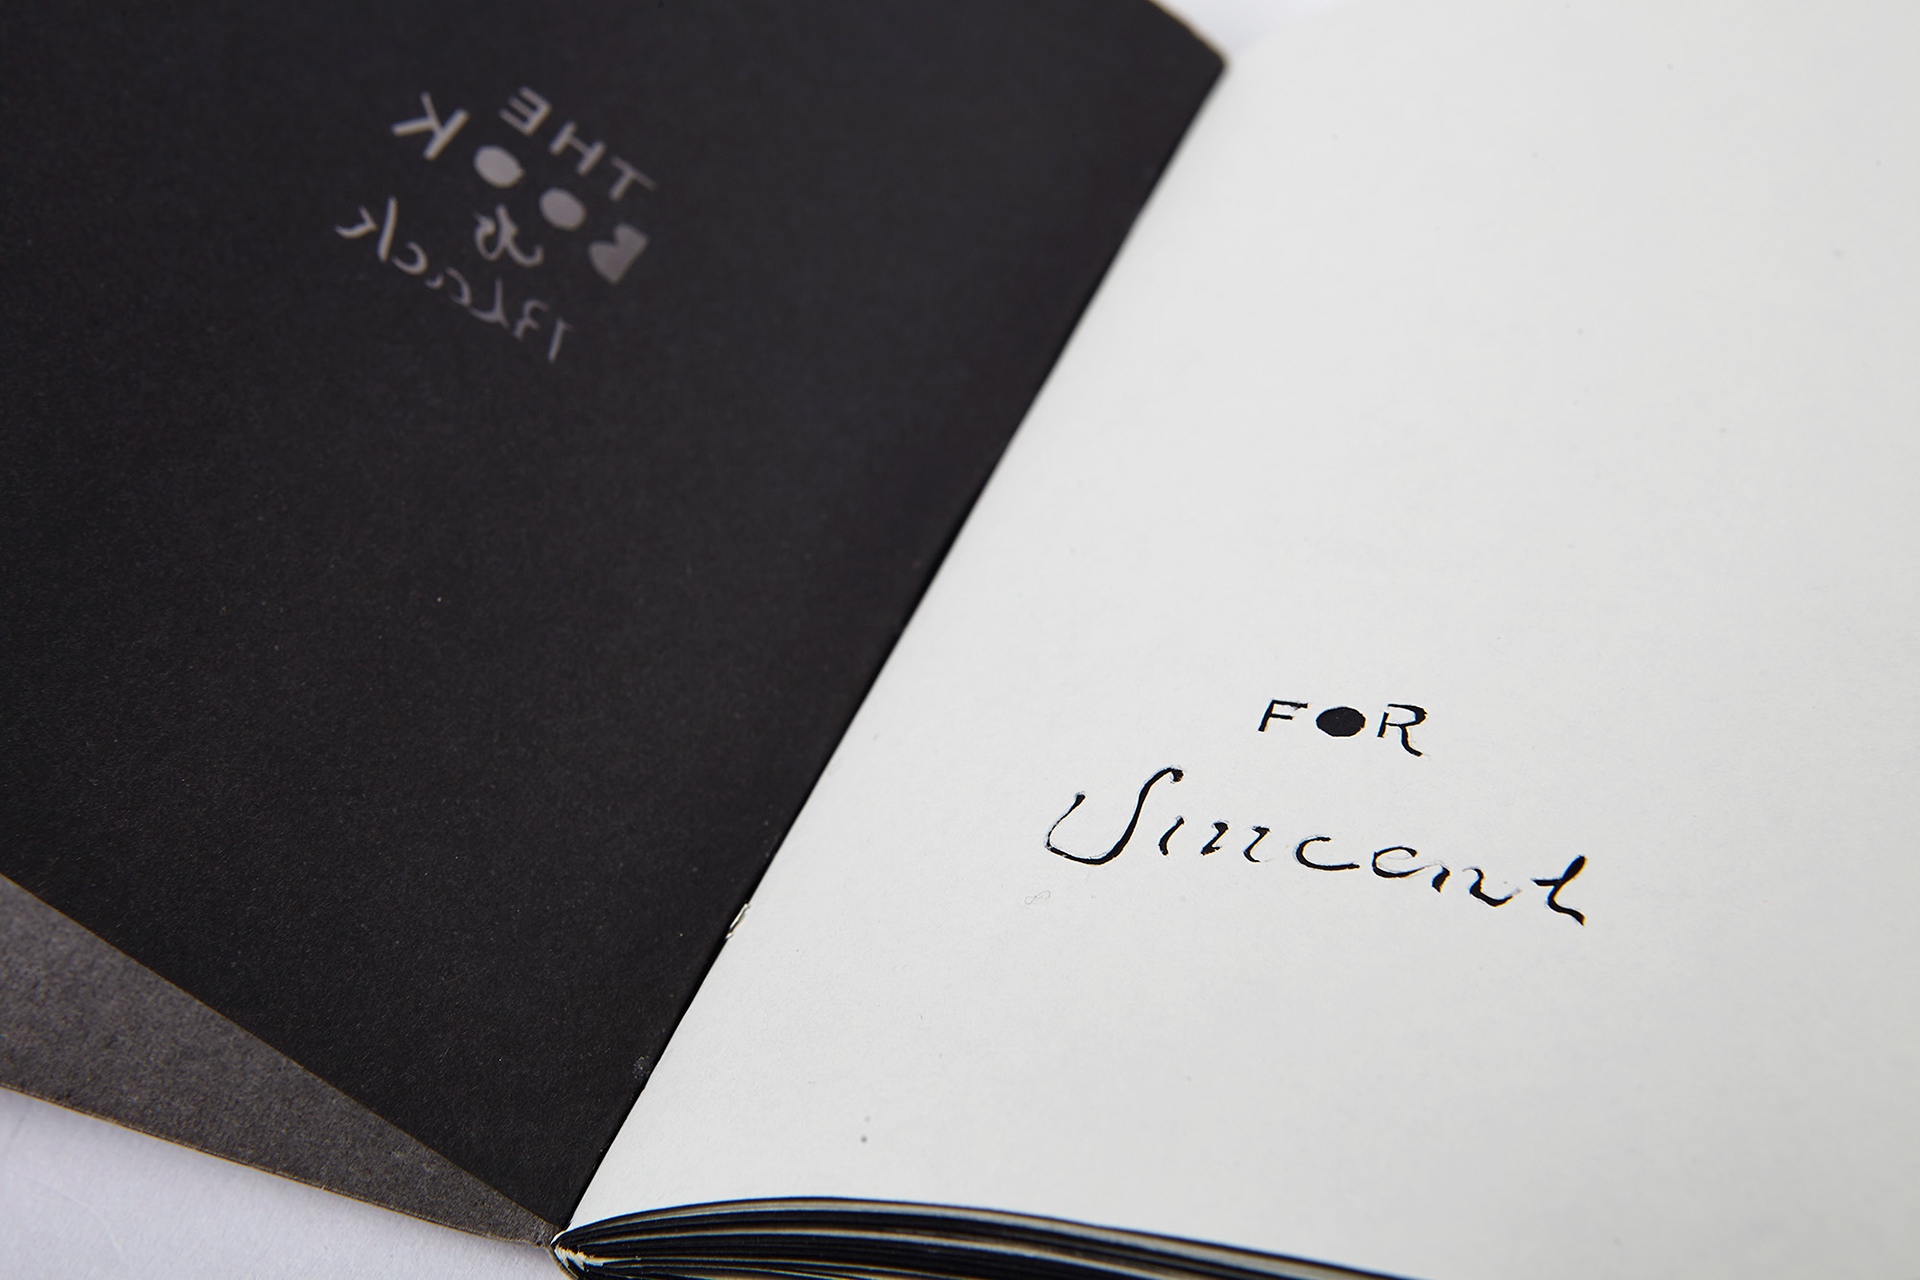 THE
BOOK
of
Black
FOR
Vincent